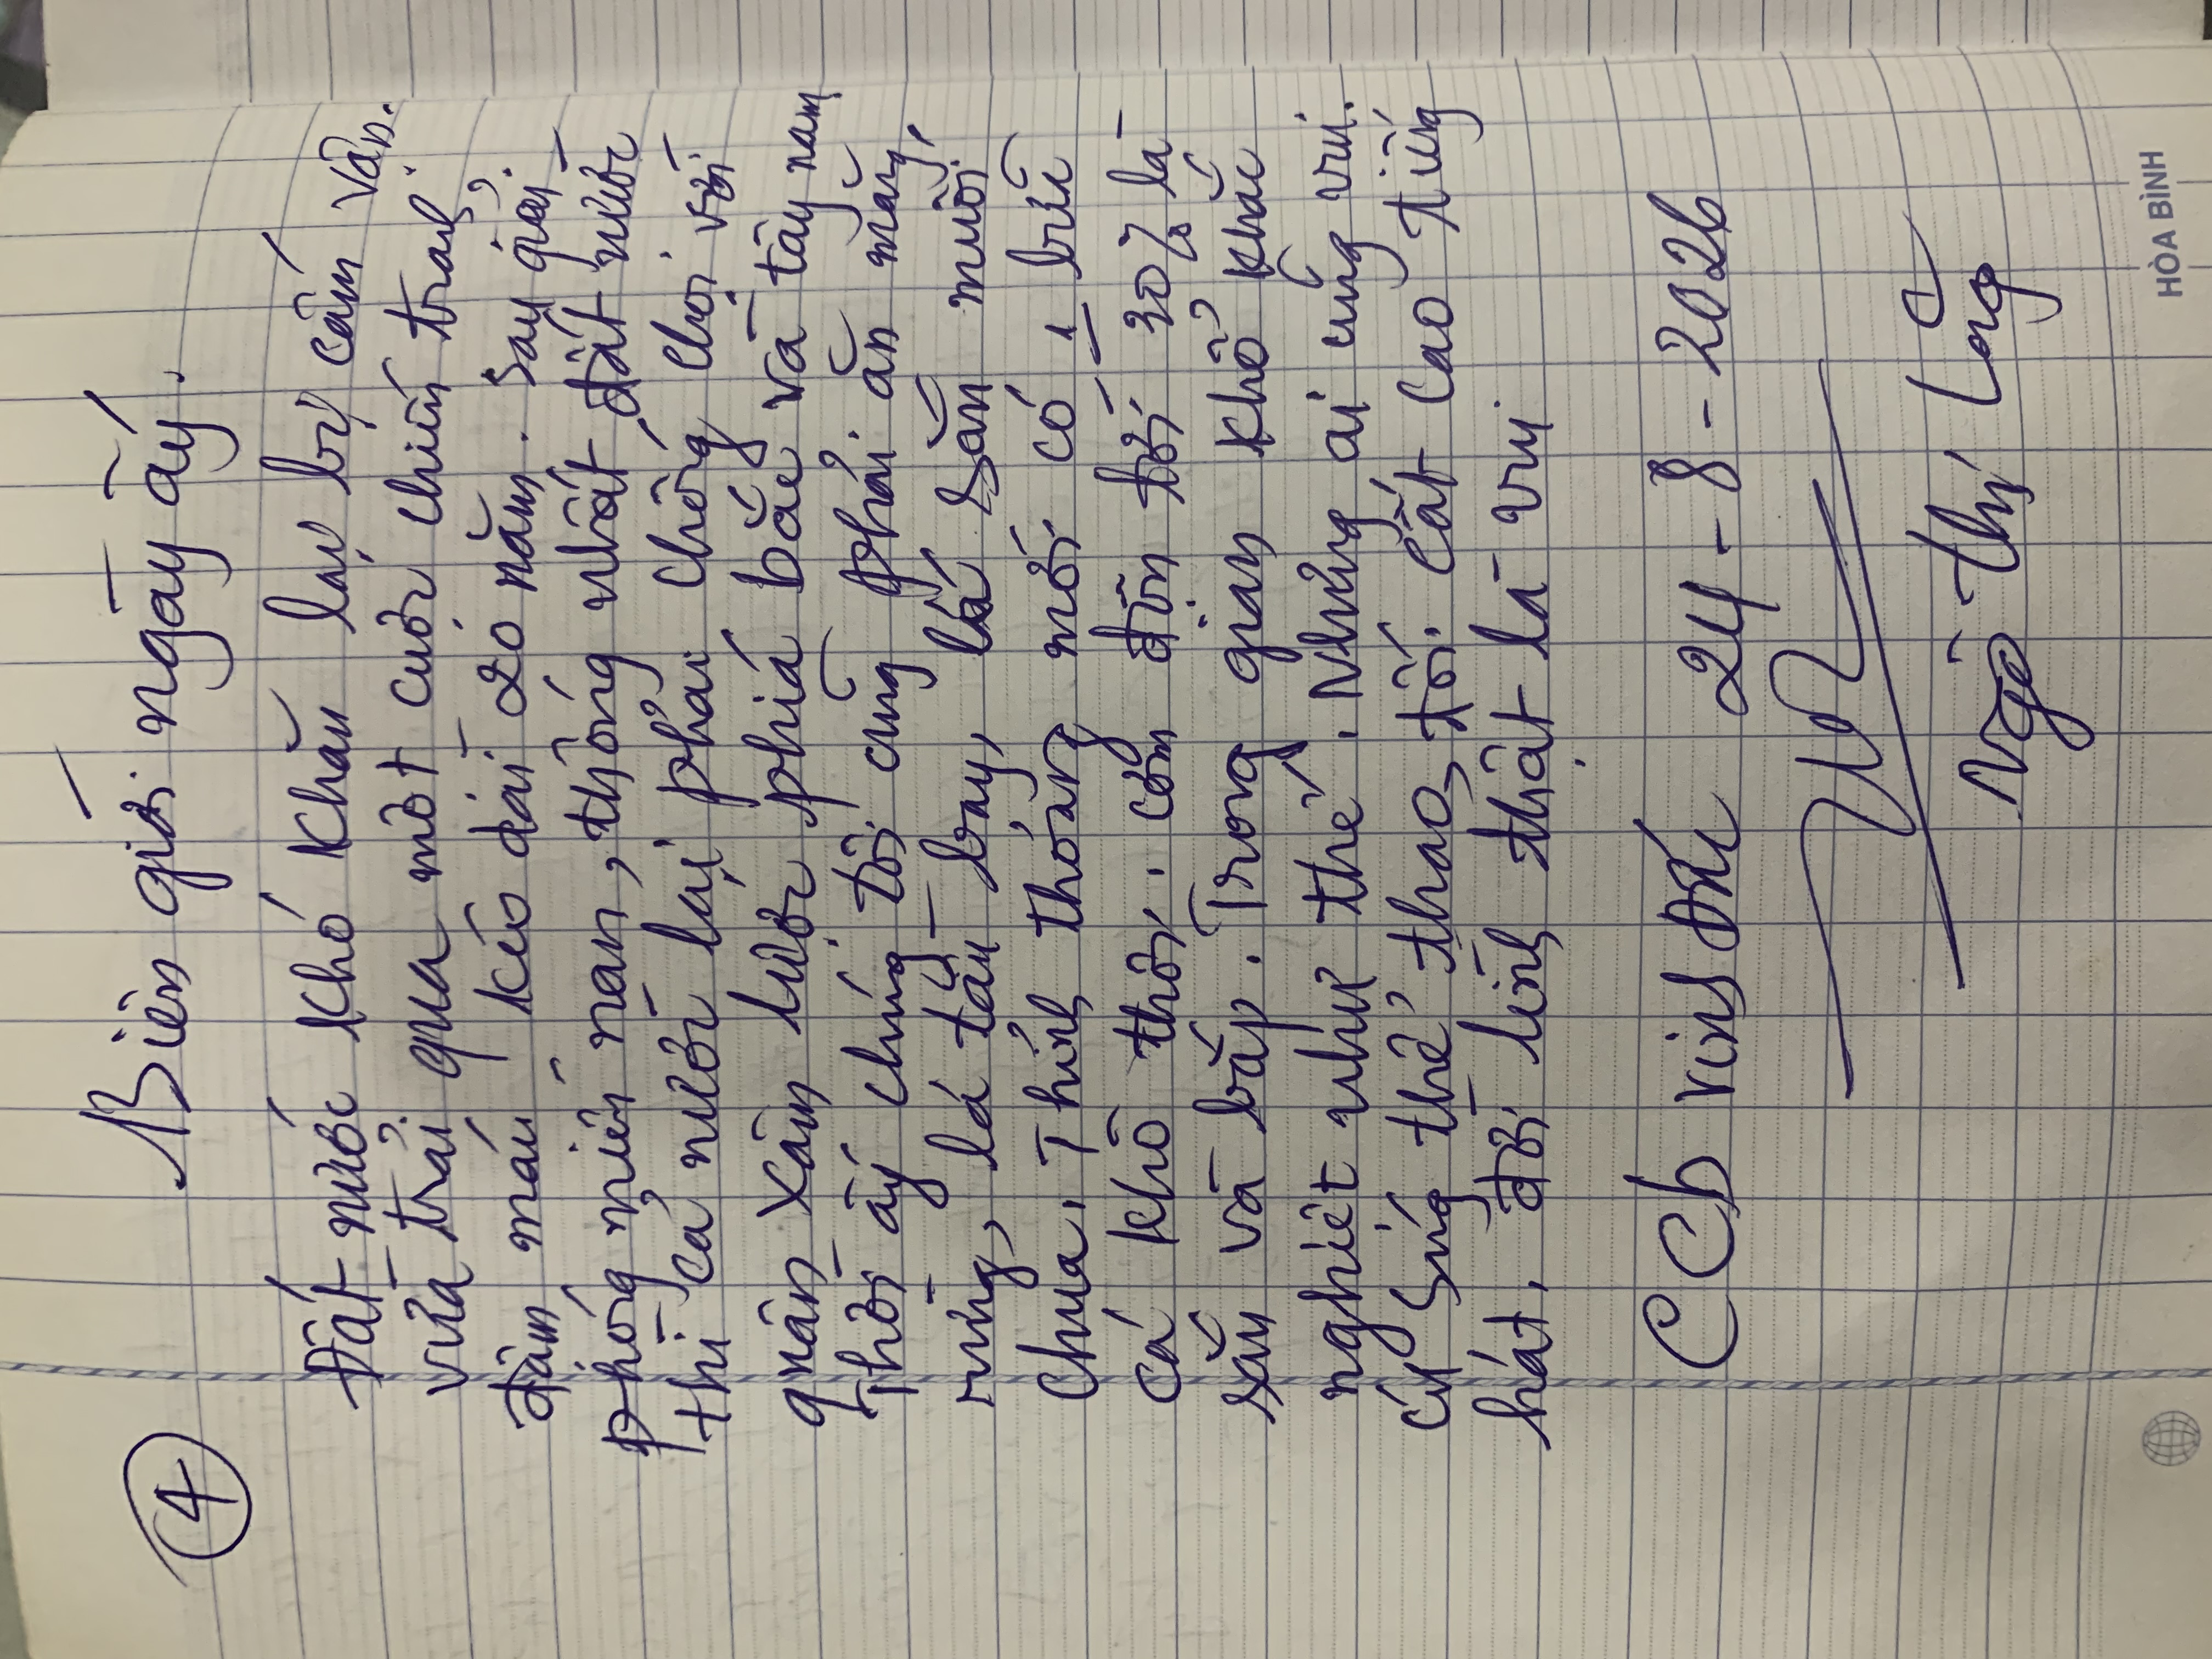 ④
Biên giới ngày ấy.
Đất nước khó khăn lại bị cấm vận.
vừa trải qua một cuộc chiến tranh
đẫm máu kéo dài 20 năm. Sau giải
phóng miền nam, thống nhất đất nước
thì cả nước lại phải chống chọi với
quân xâm lược phía bắc và tây nam
Thời ấy chúng tôi cũng phải ăn măng
rừng, lá tàu bay, lá sắn muối
chua, Thỉnh thoảng mới có 1 bữa
cá khô thôi. cơm độn tới 30% là
sắn và bắp. Trong gian khổ khắc
nghiệt như thế. Nhưng ai cũng vui.
cứ súng thể thao tôi cất cao tiếng
hát, đời lính thật là vui
CCb 24-8-2026
Ngô Thị Long
HÒA BÌNH